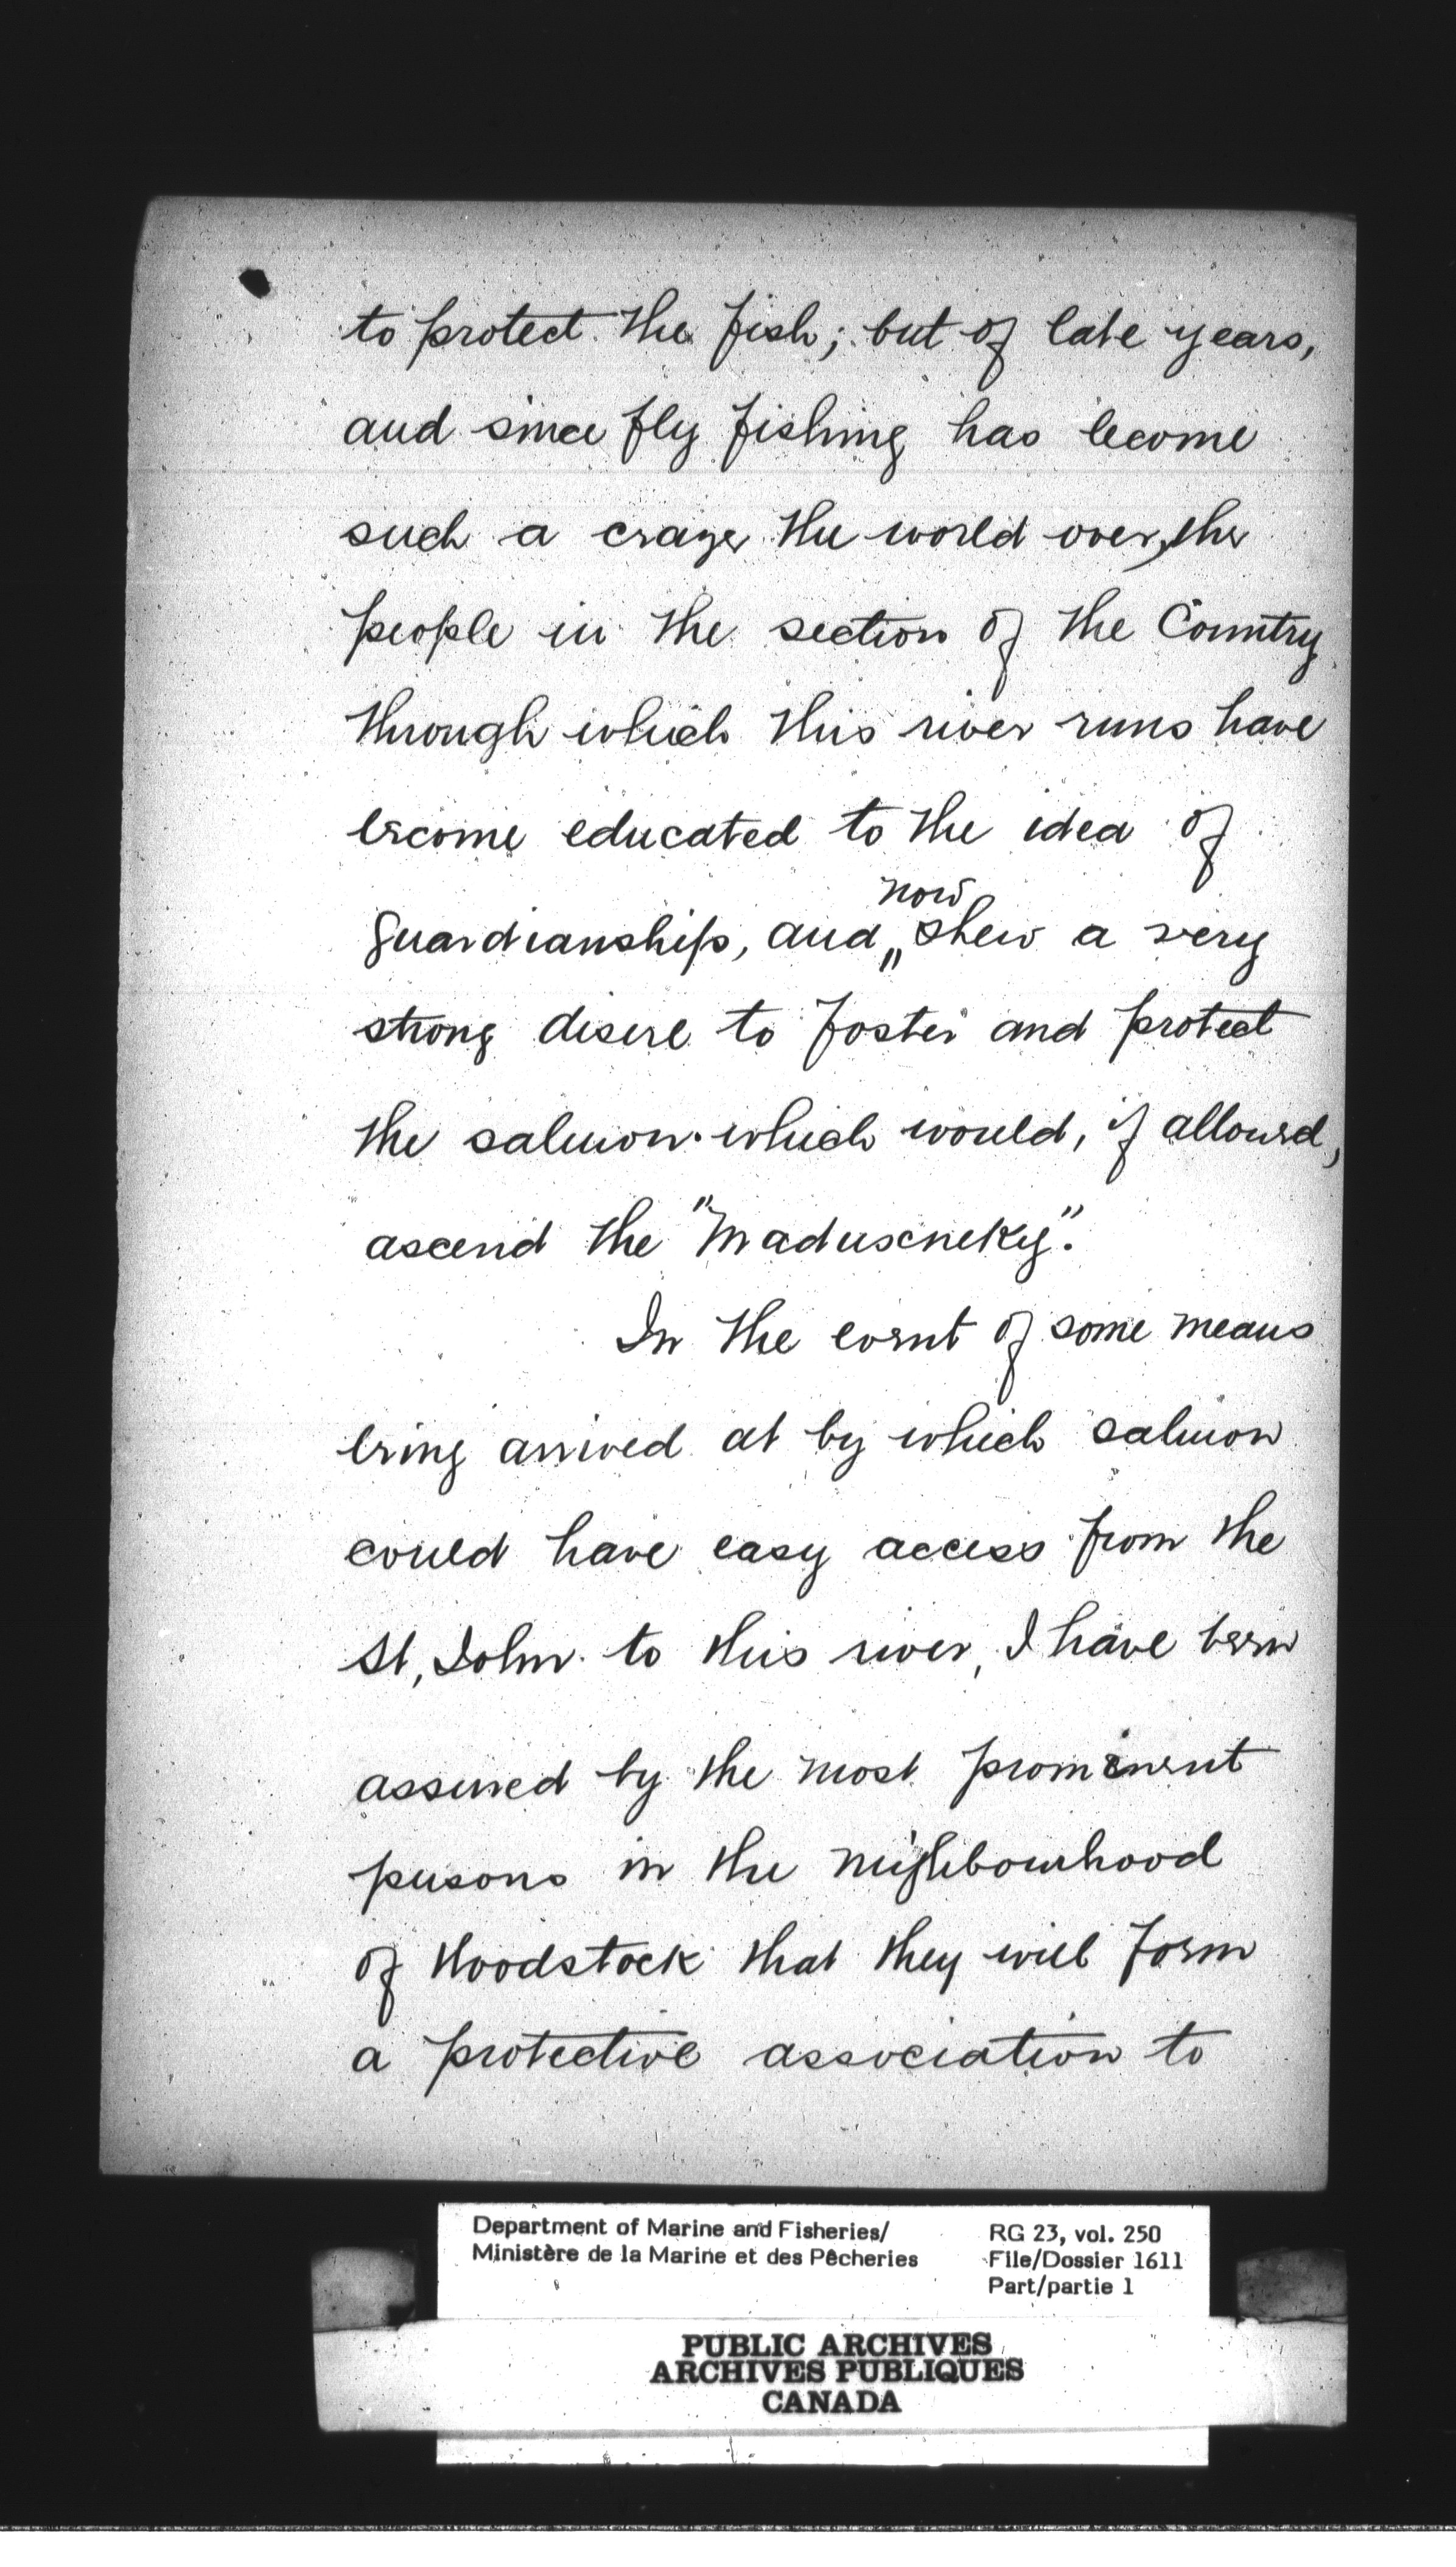 to protect the fish; but of late years,
and since fly fishing has become
such a craze the world over, the
people in the section of the Country
through which this river runs have
become educated to the idea of
now
guardianship, and shew a very
strong desire to foster and protect
the salmon which would, if allowed,
ascend the "Maduxneky".
In the event of some means
being arrived at by which salmon
could have easy access from the
St, John to this river, I have been
assured by the most prominent
persons in the neighbourhood
of Woodstock that they will form
a protective association to
Department of Marine and Fisheries/
Ministère de la Marine et des Pêcheries
RG 23, vol. 250
File/Dossier 1611
Part/partie 1
PUBLIC ARCHIVES
ARCHIVES PUBLIQUES
CANADA